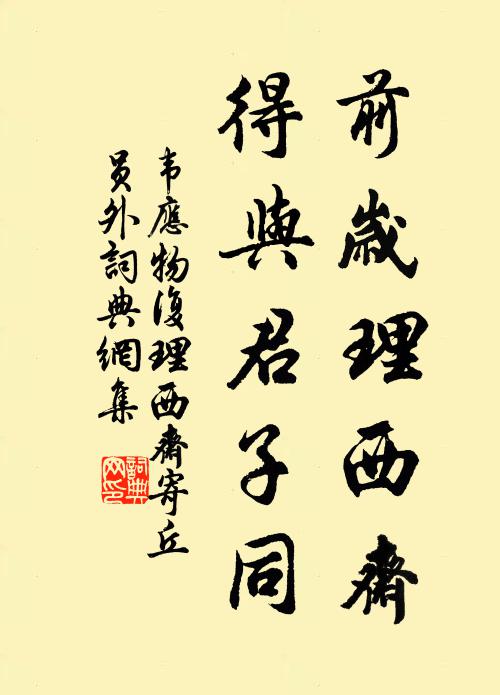 前歲理西齋
得與君子同
韦應物復理西齋寄丘
員外詞典網集
詞典
网印